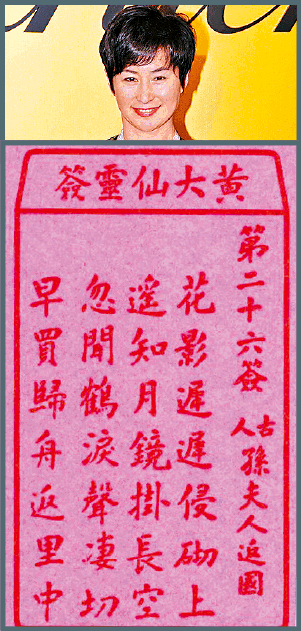 黃大仙靈簽
第二十六簽 古人 孫夫人返國
花影遲遲侵砌上
遙知月鏡掛長空
忽聞鶴淚聲凄切
早買歸舟返里中